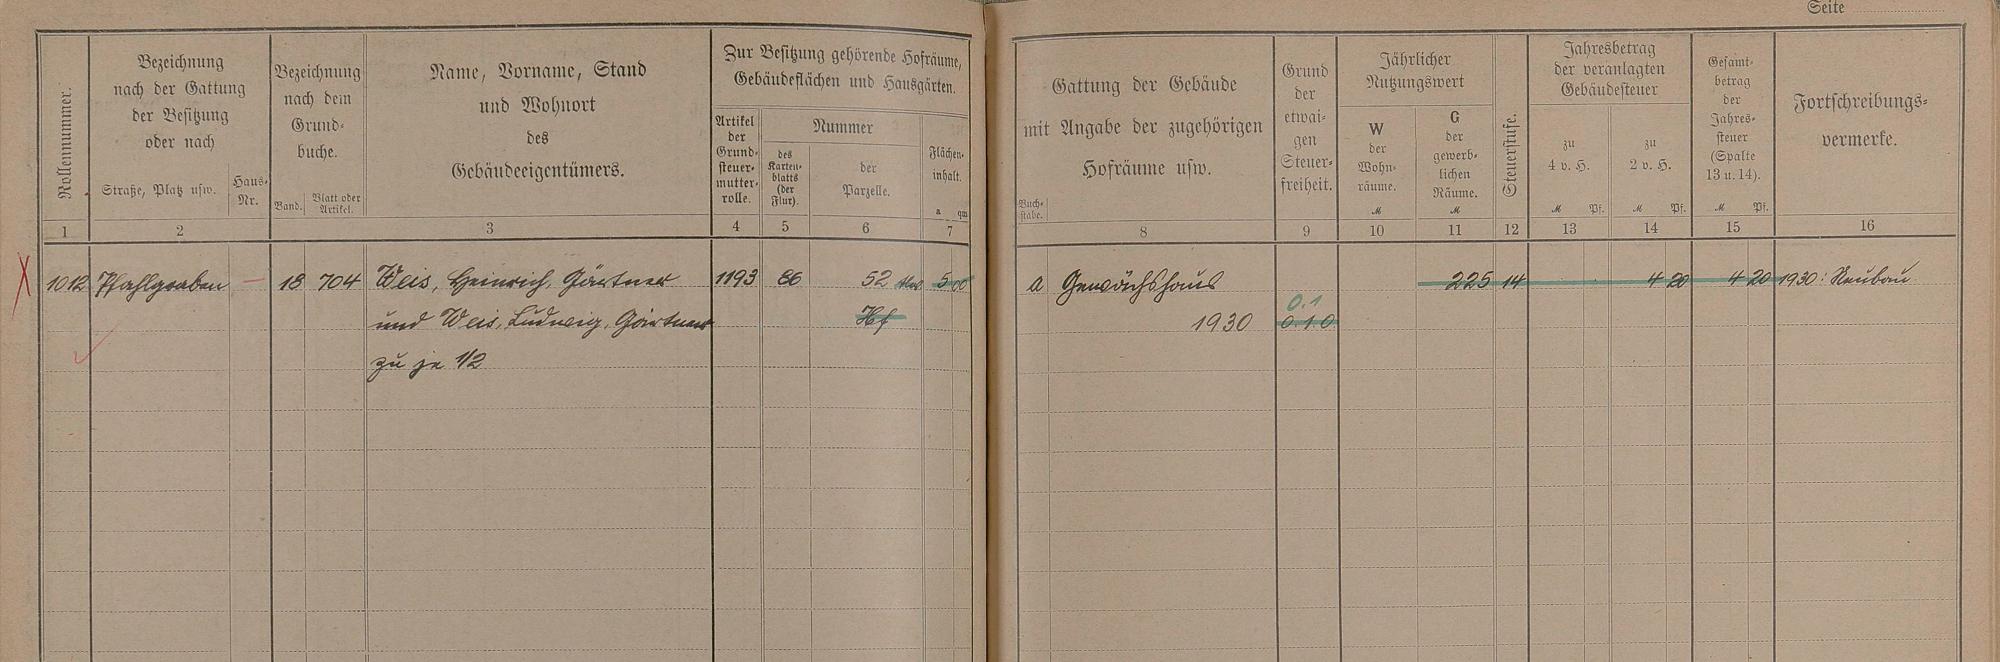 Seite
Rollennummer.
Bezeichnung
nach der Gattung
der Besitzung
oder nach
Straße, Platz usw.
Haus-
Nr.
Bezeichnung
nach dem
Grund-
buche.
Band.
Blatt oder
Artikel.
Name, Vorname, Stand
und Wohnort
des
Gebäudeeigentümers.
Zur Besitzung gehörende Hofräume,
Gebäudeflächen und Hausgärten.
Artikel
der
Grund-
steuer-
mutter-
rolle.
Nummer
des
Karten-
blatts
(der
Flur).
der
Parzelle.
Flächen-
inhalt.
a qm
Gattung der Gebäude
mit Angabe der zugehörigen
Hofräume usw.
Buch-
stabe.
Grund
der
etwai-
gen
Steuer-
freiheit.
Jährlicher
Nutzungswert
W
der
Wohn-
räume.
M
G
der
gewerb-
lichen
Räume.
M
Steuerstufe.
Jahresbetrag
der veranlagten
Gebäudesteuer
zu
4 v. H.
M Pf.
zu
2 v. H.
M Pf.
Gesamt-
betrag
der
Jahres-
steuer
(Spalte
13 u. 14).
M Pf.
Fortschreibungs-
vermerke.
1 2 3 4 5 6 7 8 9 10 11 12 13 14 15 16
1012 Pfahlgraben — 18 704 Weis, Heinrich, Gärtner 1193 86 52 5 00 a Gewächshaus 225 14 4 20 4 20 1930: Neubau
und Weis, Ludwig, Gärtner Hf 1930 0.1 0 1 0
zu je 1/2